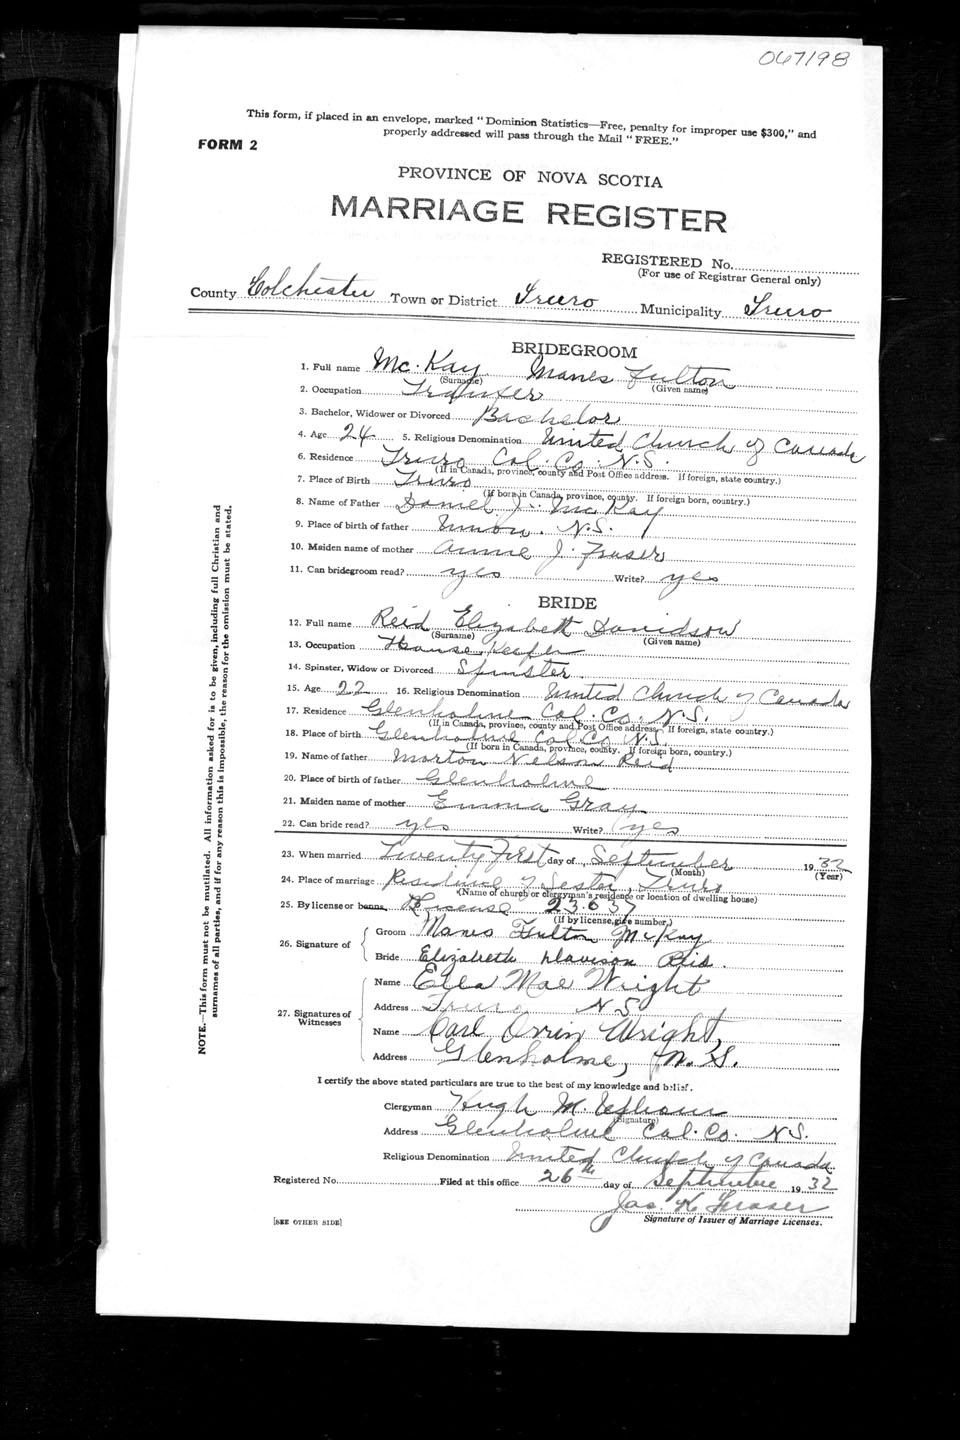 067198
This form, if placed in an envelope, marked "Dominion Statistics—Free, penalty for improper use $300," and
properly addressed will pass through the Mail "FREE."
FORM 2
PROVINCE OF NOVA SCOTIA
MARRIAGE REGISTER
REGISTERED No.
(For use of Registrar General only)
County Colchester Town or District Truro Municipality Truro
BRIDEGROOM
1. Full name Mc.Kay Manes Fulton
(Surname) (Given name)
2. Occupation
3. Bachelor, Widower or Divorced Bachelor
4. Age 24 5. Religious Denomination United Church of Canada
6. Residence Truro Col. Co. N.S.
(If in Canada, province, county and Post Office address. If foreign, state country.)
7. Place of Birth Truro
(If born in Canada, province, county. If foreign born, country.)
8. Name of Father Daniel J. McKay
9. Place of birth of father Union. N.S.
10. Maiden name of mother Annie J. Fraser
11. Can bridegroom read? yes Write? yes
BRIDE
12. Full name Reid Elizabeth Davidson
(Surname) (Given name)
13. Occupation House Keeper
14. Spinster, Widow or Divorced Spinster.
15. Age 22 16. Religious Denomination United Church of Canada
17. Residence Glenholme Col. Co. N.S.
(If in Canada, province, county and Post Office address. If foreign, state country.)
18. Place of birth Glenholme Col Co N.S.
(If born in Canada, province, county. If foreign born, country.)
19. Name of father Morton Nelson Reid
20. Place of birth of father Glenholme
21. Maiden name of mother Emma Gray
22. Can bride read? yes Write? yes
23. When married Twenty First day of September 1932
(Month) (Year)
24. Place of marriage Residence of Sester, Truro
(Name of church or clergyman's residence or location of dwelling house)
25. By license or banns License 23.637
(If by license, give number.)
26. Signature of
Groom Manes Fulton McKay
Bride Elizabeth Davison Reid.
27. Signatures of Witnesses
Name Ella Mae Wright
Address Truro NS
Name Carl Orrin Wright,
Address Glenholme, N.S.
I certify the above stated particulars are true to the best of my knowledge and belief.
Clergyman Hugh M. Upham
(Signature)
Address Glenholme Col. Co. N.S.
Religious Denomination United Church of Canada
Registered No. Filed at this office 26th day of September 1932
Jas. K Fraser
[SEE OTHER SIDE] Signature of Issuer of Marriage Licenses.
NOTE.—This form must not be mutilated. All information asked for is to be given, including full Christian and
surnames of all parties, and if for any reason this is impossible, the reason for the omission must be stated.